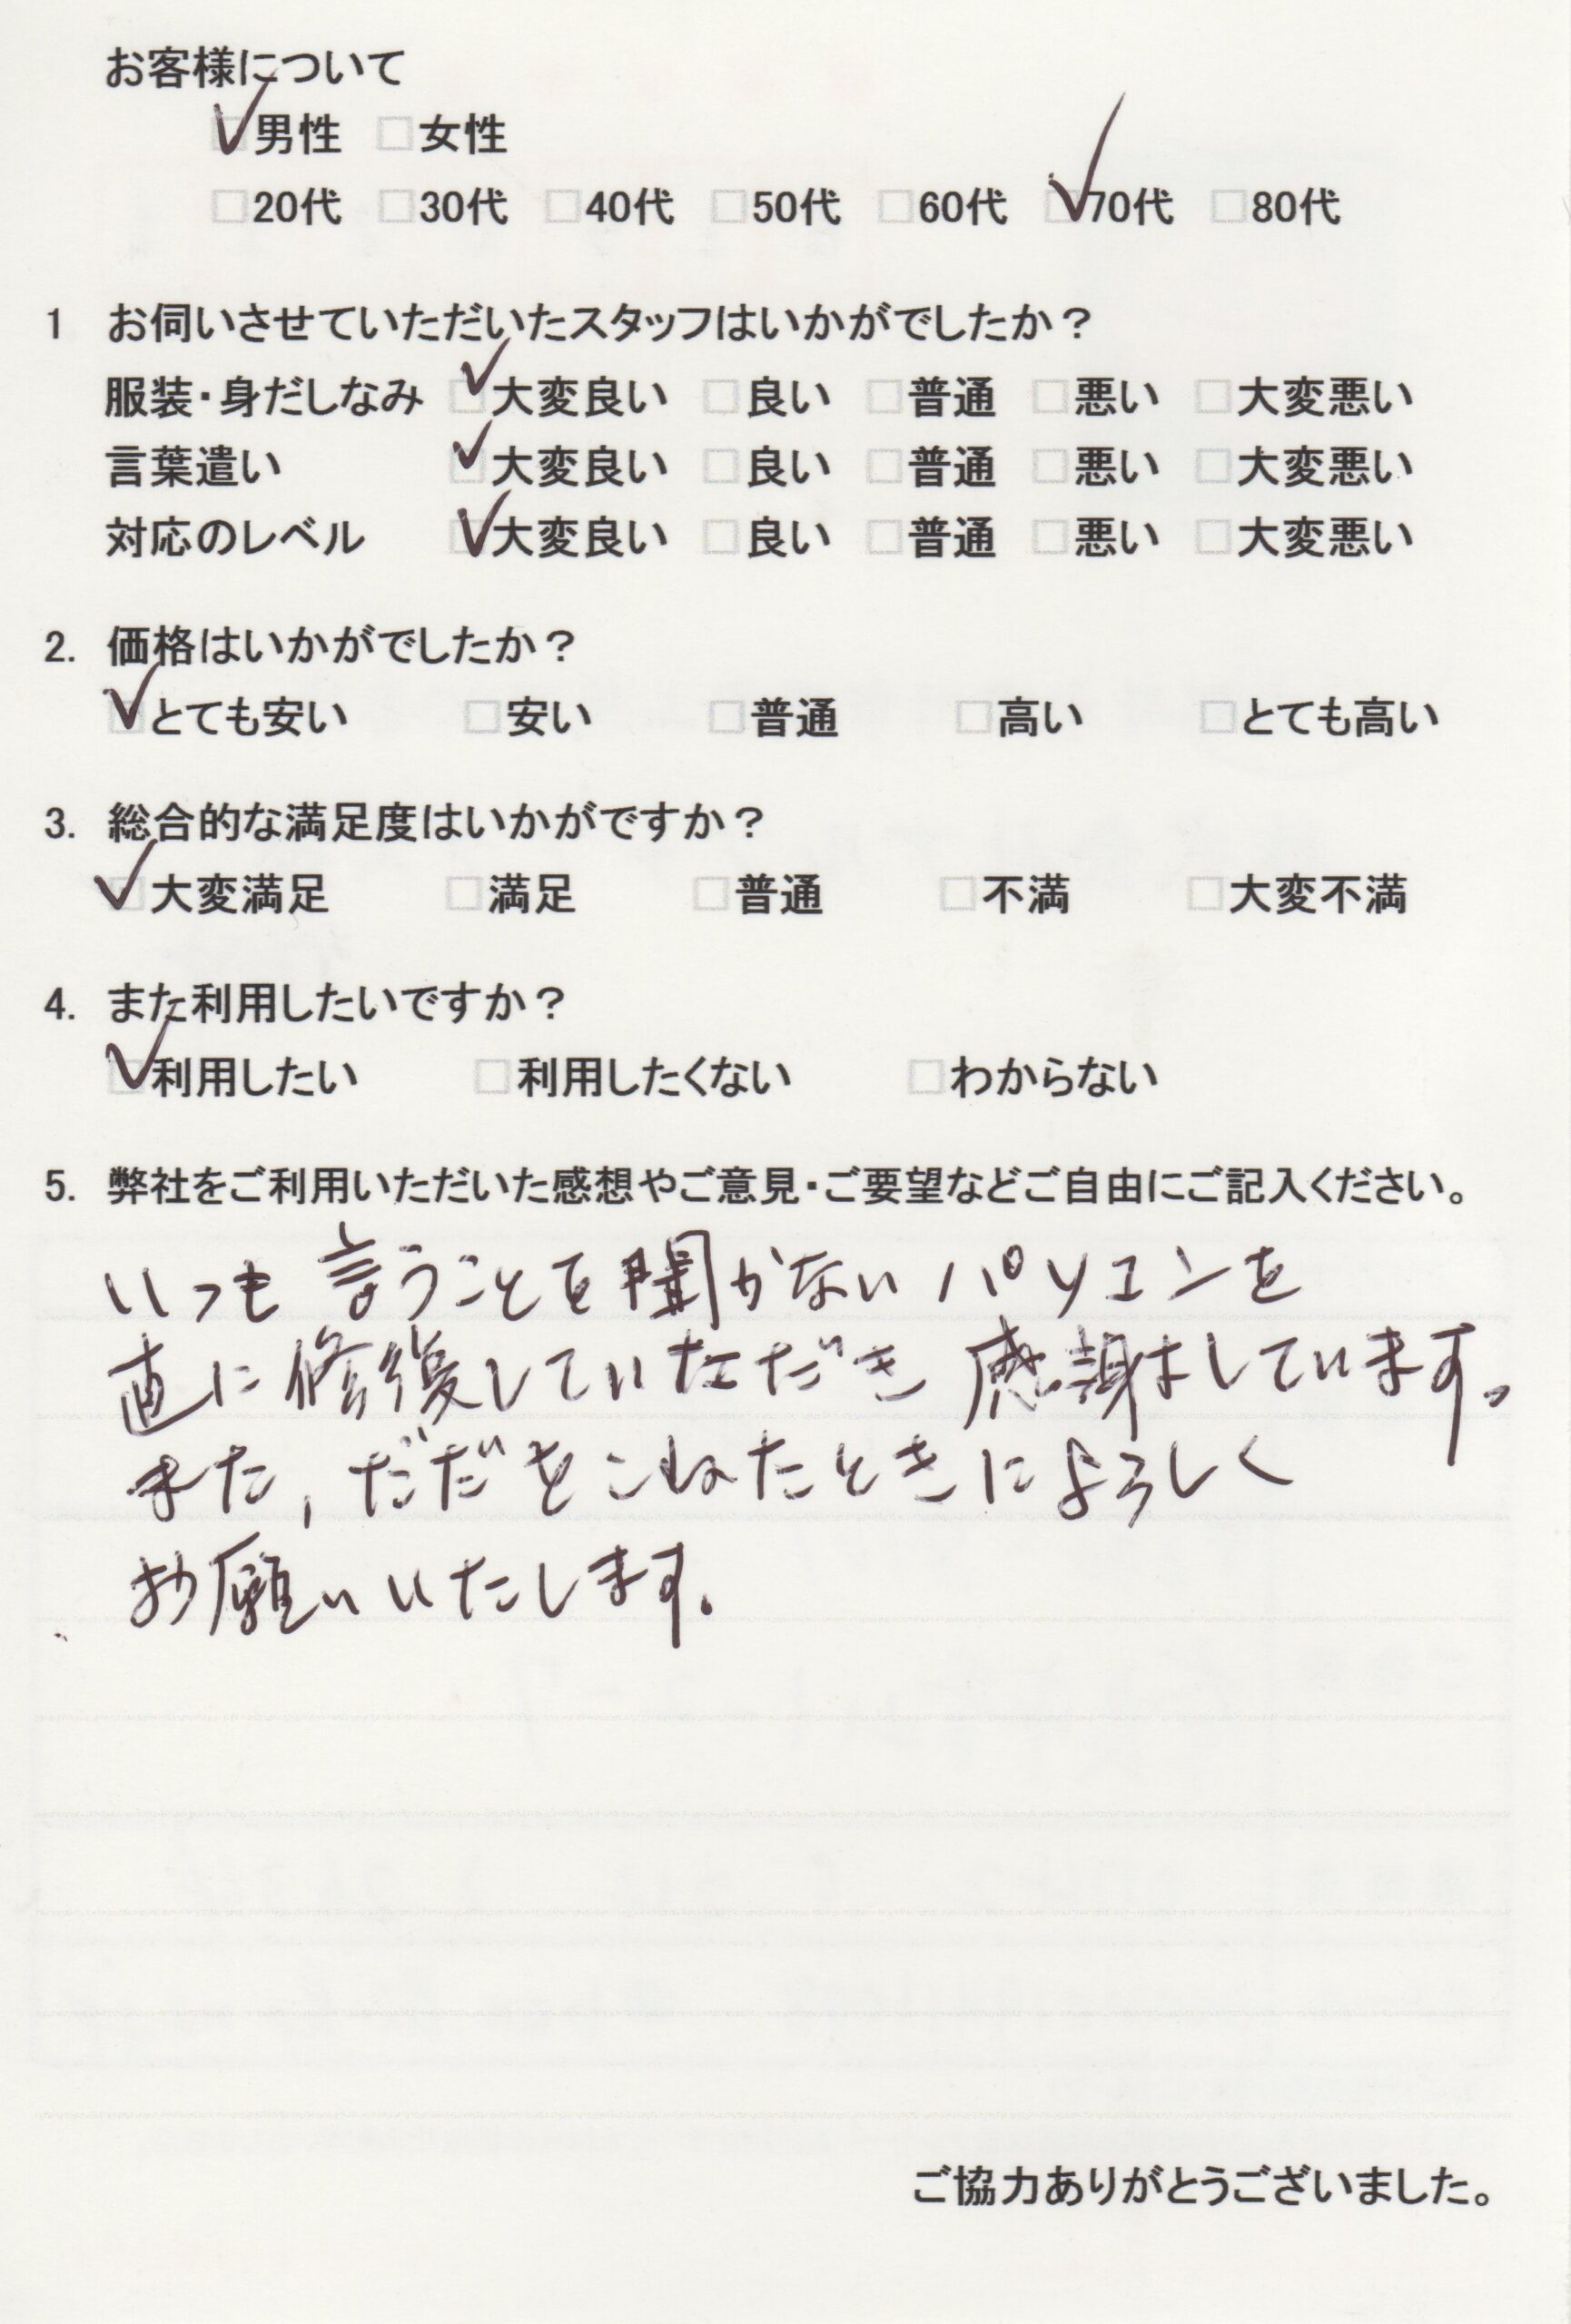 お客様について
☑男性 □女性
□20代 □30代 □40代 □50代 □60代 ☑70代 □80代
1 お伺いさせていただいたスタッフはいかがでしたか？
服装・身だしなみ ☑大変良い □良い □普通 □悪い □大変悪い
言葉遣い ☑大変良い □良い □普通 □悪い □大変悪い
対応のレベル ☑大変良い □良い □普通 □悪い □大変悪い
2. 価格はいかがでしたか？
☑とても安い □安い □普通 □高い □とても高い
3. 総合的な満足度はいかがですか？
☑大変満足 □満足 □普通 □不満 □大変不満
4. また利用したいですか？
☑利用したい □利用したくない □わからない
5. 弊社をご利用いただいた感想やご意見・ご要望などご自由にご記入ください。
いつも言うことを聞かないパソコンを
直に修復していただき感謝しています。
また，だだをこねたときによろしく
お願いいたします.
ご協力ありがとうございました。